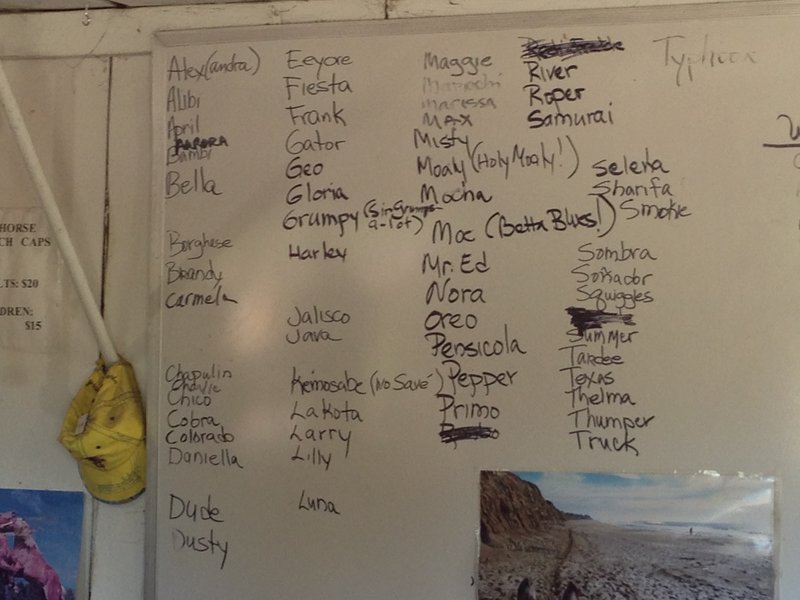 Alex(andra)
Alibi
April
Aurora
Bambi
Bella
Borghese
Brandy
Carmela
Chapulin
Charlie
Chico
Cobra
Colorado
Daniella
Dude
Dusty
Eeyore
Fiesta
Frank
Gator
Geo
Gloria
Grumpy (Sir Grumps
a-lot)
Harley
Jalisco
Java
Kemosabe (No Savé)
Lakota
Larry
Lilly
Luna
Maggie
Mariachi
Marissa
Max
Misty
Moaly (Holy Moaly!)
Mocha
Moe (Betta Blues!)
Mr. Ed
Nora
Oreo
Pensicola
Pepper
Primo
River
Roper
Samurai
Selena
Sharifa
Smokie
Sombra
Soñador
Squiggles
Summer
Tardee
Texas
Thelma
Thumper
Truck
Typhoon
HORSE
CH CAPS
LTS: $20
DREN:
$15